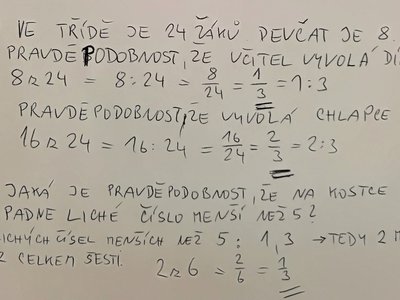 VE TŘÍDĚ JE 24 ŽÁKŮ DEVČAT JE 8.
PRAVDĚPODOBNOST, ŽE UČITEL VYVOLÁ DÍ
8 z 24 = 8:24 = 8/24 = 1/3 = 1:3
PRAVDĚPODOBNOST, ŽE VYVOLÁ CHLAPCE
16 z 24 = 16:24 = 16/24 = 2/3 = 2:3
JAKÁ JE PRAVDĚPODOBNOST, ŽE NA KOSTCE
PADNE LICHÉ ČÍSLO MENŠÍ NEŽ 5?
ICHÝCH ČÍSEL MENŠÍCH NEŽ 5: 1,3 → TEDY 2 M
Z CELKEM ŠESTI.
2 z 6 = 2/6 = 1/3